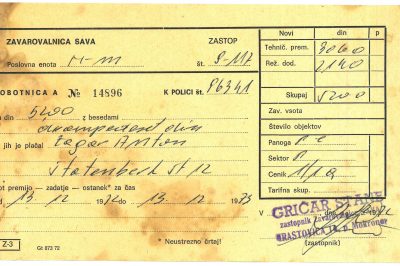 ZAVAROVALNICA SAVA ZASTOP
Poslovna enota H-M št. 9-117
OBOTNICA A № 14896 K POLICI št. 86341
din 5200 z besedami
din
jih je plačal
št 12
ot premijo - zadatje - ostanek* za čas
13 12 1972 do 13 12 1973
* Neustrezno črtaj!
Z-3 Gt 873 72
Novi din p
Tehnič. prem. 3060
Rež. dod. 2140
Skupaj 5200
Zav. vsota
Število objektov
Panoga
Sektor P
Cenik
Tarifna skup.
V
GRIČAR STANE
zastopnik zavarovalnice
HRASTOVICA p. Mokronog
(zastopnik)